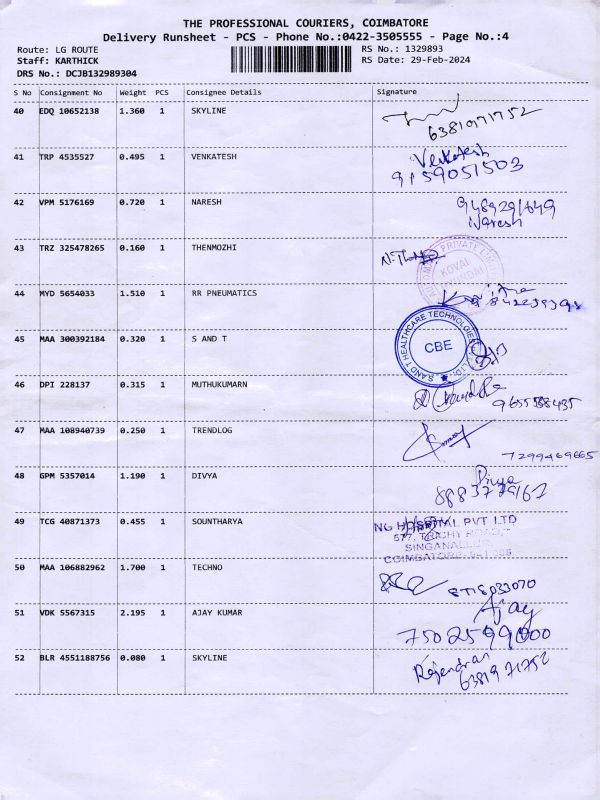 THE PROFESSIONAL COURIERS, COIMBATORE
Delivery Runsheet - PCS - Phone No.:0422-3505555 - Page No.:4
Route: LG ROUTE
Staff: KARTHICK
DRS No.: DCJB132989304
RS No.: 1329893
RS Date: 29-Feb-2024
S No Consignment No Weight PCS Consignee Details Signature
40 EDQ 10652138 1.360 1 SKYLINE
41 TRP 4535527 0.495 1 VENKATESH Venkatesh
9159051503
42 VPM 5176169 0.720 1 NARESH
Naresh
43 TRZ 325478265 0.160 1 THENMOZHI
PRIVATE
KOVAI
44 MYD 5654033 1.510 1 RR PNEUMATICS
45 MAA 300392184 0.320 1 S AND T
S AND T HEALTHCARE TECHNOLOGIES
CBE
46 DPI 228137 0.315 1 MUTHUKUMARN
47 MAA 108940739 0.250 1 TRENDLOG
7299469665
48 GPM 5357014 1.190 1 DIVYA Divya
49 TCG 40871373 0.455 1 SOUNTHARYA
NG HOSPITAL PVT LTD
577, TRICHY ROAD,
SINGANALLUR
COIMBATORE
50 MAA 106882962 1.700 1 TECHNO
51 VDK 5567315 2.195 1 AJAY KUMAR Ajay
7502599000
52 BLR 4551188756 0.080 1 SKYLINE Rajendran
6381971752